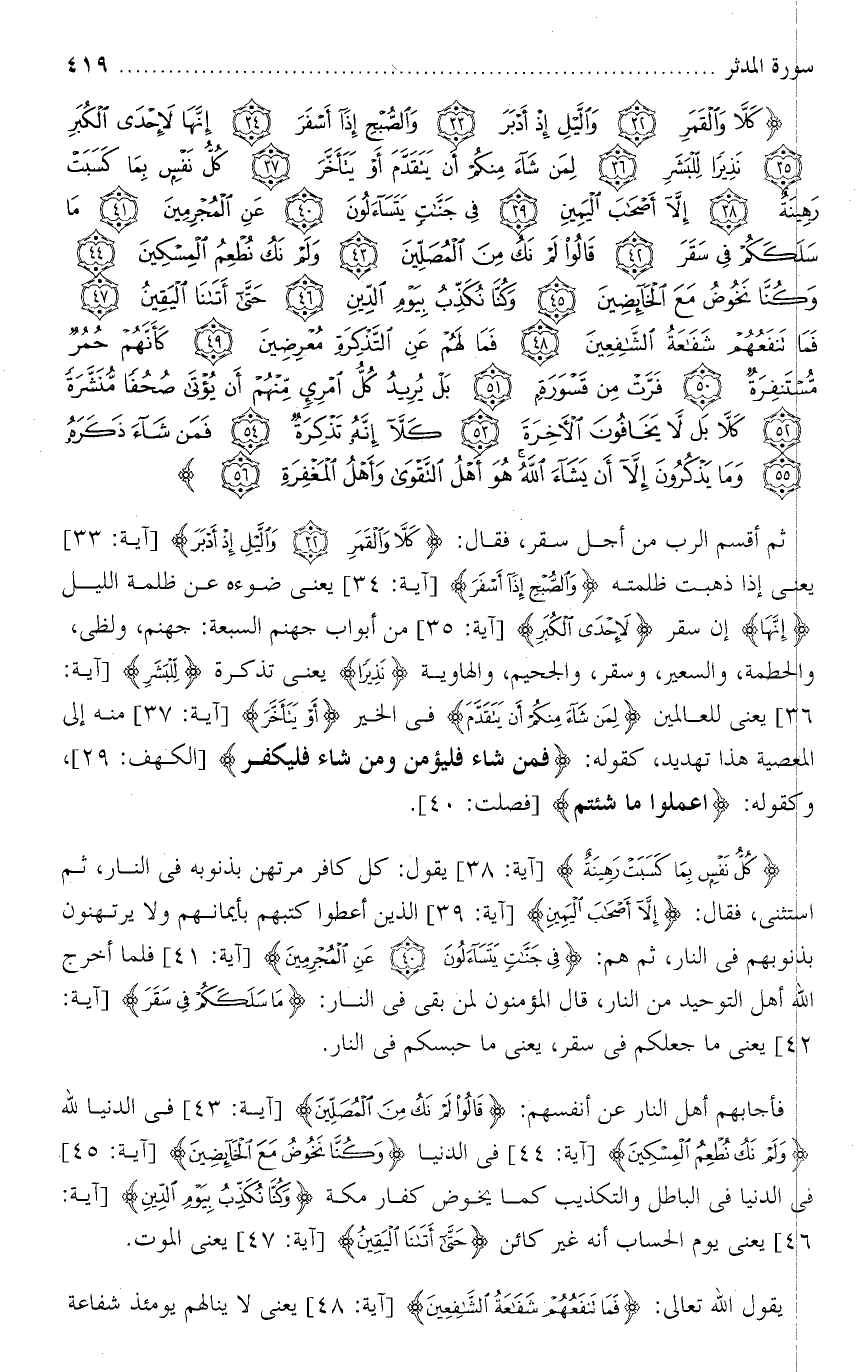 سورة المدثر ........................................................................ ٤١٩
﴿ كَلَّا وَالْقَمَرِ ﴿٣٢﴾ وَالَّيْلِ إِذْ أَدْبَرَ ﴿٣٣﴾ وَالصُّبْحِ إِذَآ أَسْفَرَ ﴿٣٤﴾ إِنَّهَا لَإِحْدَى الْكُبَرِ
﴿٣٥﴾ نَذِيرًا لِّلْبَشَرِ ﴿٣٦﴾ لِمَن شَآءَ مِنكُمْ أَن يَتَقَدَّمَ أَوْ يَتَأَخَّرَ ﴿٣٧﴾ كُلُّ نَفْسٍ بِمَا كَسَبَتْ
رَهِينَةٌ ﴿٣٨﴾ إِلَّآ أَصْحَٰبَ الْيَمِينِ ﴿٣٩﴾ فِي جَنَّٰتٍ يَتَسَآءَلُونَ ﴿٤٠﴾ عَنِ الْمُجْرِمِينَ ﴿٤١﴾ مَا
سَلَكَكُمْ فِي سَقَرَ ﴿٤٢﴾ قَالُوا۟ لَمْ نَكُ مِنَ الْمُصَلِّينَ ﴿٤٣﴾ وَلَمْ نَكُ نُطْعِمُ الْمِسْكِينَ ﴿٤٤﴾
وَكُنَّا نَخُوضُ مَعَ الْخَآئِضِينَ ﴿٤٥﴾ وَكُنَّا نُكَذِّبُ بِيَوْمِ الدِّينِ ﴿٤٦﴾ حَتَّىٰٓ أَتَىٰنَا الْيَقِينُ ﴿٤٧﴾
فَمَا تَنفَعُهُمْ شَفَٰعَةُ الشَّٰفِعِينَ ﴿٤٨﴾ فَمَا لَهُمْ عَنِ التَّذْكِرَةِ مُعْرِضِينَ ﴿٤٩﴾ كَأَنَّهُمْ حُمُرٌ
مُّسْتَنفِرَةٌ ﴿٥٠﴾ فَرَّتْ مِن قَسْوَرَةٍ ﴿٥١﴾ بَلْ يُرِيدُ كُلُّ امْرِئٍ مِّنْهُمْ أَن يُؤْتَىٰ صُحُفًا مُّنَشَّرَةً
﴿٥٢﴾ كَلَّا بَل لَّا يَخَافُونَ الْأَخِرَةَ ﴿٥٣﴾ كَلَّآ إِنَّهُ تَذْكِرَةٌ ﴿٥٤﴾ فَمَن شَآءَ ذَكَرَهُ
﴿٥٥﴾ وَمَا يَذْكُرُونَ إِلَّآ أَن يَشَآءَ اللَّهُ هُوَ أَهْلُ التَّقْوَىٰ وَأَهْلُ الْمَغْفِرَةِ ﴿٥٦﴾ ﴾
ثم أقسم الرب من أجل سقر، فقال: ﴿كَلَّا وَالْقَمَرِ ﴿٣٢﴾ وَالَّيْلِ إِذْ أَدْبَرَ﴾ [آية: ٣٣]
يعنى إذا ذهبت ظلمته ﴿وَالصُّبْحِ إِذَآ أَسْفَرَ﴾ [آية: ٣٤] يعنى ضوءه عن ظلمة الليل
﴿إِنَّهَا﴾ إن سقر ﴿لَإِحْدَى الْكُبَرِ﴾ [آية: ٣٥] من أبواب جهنم السبعة: جهنم، ولظى،
والحطمة، والسعير، وسقر، والجحيم، والهاوية ﴿نَذِيرًا﴾ يعنى تذكرة ﴿لِّلْبَشَرِ﴾ [آية:
٣٦] يعنى للعالمين ﴿لِمَن شَآءَ مِنكُمْ أَن يَتَقَدَّمَ﴾ فى الخير ﴿أَوْ يَتَأَخَّرَ﴾ [آية: ٣٧] منه إلى
المعصية هذا تهديد، كقوله: ﴿فمن شاء فليؤمن ومن شاء فليكفر﴾ [الكهف: ٢٩]،
وكقوله: ﴿اعملوا ما شئتم﴾ [فصلت: ٤٠].
﴿كُلُّ نَفْسٍ بِمَا كَسَبَتْ رَهِينَةٌ ﴾ [آية: ٣٨] يقول: كل كافر مرتهن بذنوبه فى النار، ثم
استثنى، فقال: ﴿إِلَّآ أَصْحَٰبَ الْيَمِينِ﴾ [آية: ٣٩] الذين أعطوا كتبهم بأيمانهم ولا يرتهنون
بذنوبهم فى النار، ثم هم: ﴿فِي جَنَّٰتٍ يَتَسَآءَلُونَ ﴿٤٠﴾ عَنِ الْمُجْرِمِينَ﴾ [آية: ٤١] فلما أخرج
الله أهل التوحيد من النار، قال المؤمنون لمن بقى فى النار: ﴿مَا سَلَكَكُمْ فِي سَقَرَ﴾ [آية:
٤٢] يعنى ما جعلكم فى سقر، يعنى ما حبسكم فى النار.
فأجابهم أهل النار عن أنفسهم: ﴿قَالُوا۟ لَمْ نَكُ مِنَ الْمُصَلِّينَ﴾ [آية: ٤٣] فى الدنيا لله
﴿وَلَمْ نَكُ نُطْعِمُ الْمِسْكِينَ﴾ [آية: ٤٤] فى الدنيا ﴿وَكُنَّا نَخُوضُ مَعَ الْخَآئِضِينَ﴾ [آية: ٤٥]
فى الدنيا فى الباطل والتكذيب كما يخوض كفار مكة ﴿وَكُنَّا نُكَذِّبُ بِيَوْمِ الدِّينِ﴾ [آية:
٤٦] يعنى يوم الحساب أنه غير كائن ﴿حَتَّىٰٓ أَتَىٰنَا الْيَقِينُ﴾ [آية: ٤٧] يعنى الموت.
يقول الله تعالى: ﴿فَمَا تَنفَعُهُمْ شَفَٰعَةُ الشَّٰفِعِينَ﴾ [آية: ٤٨] يعنى لا ينالهم يومئذ شفاعة